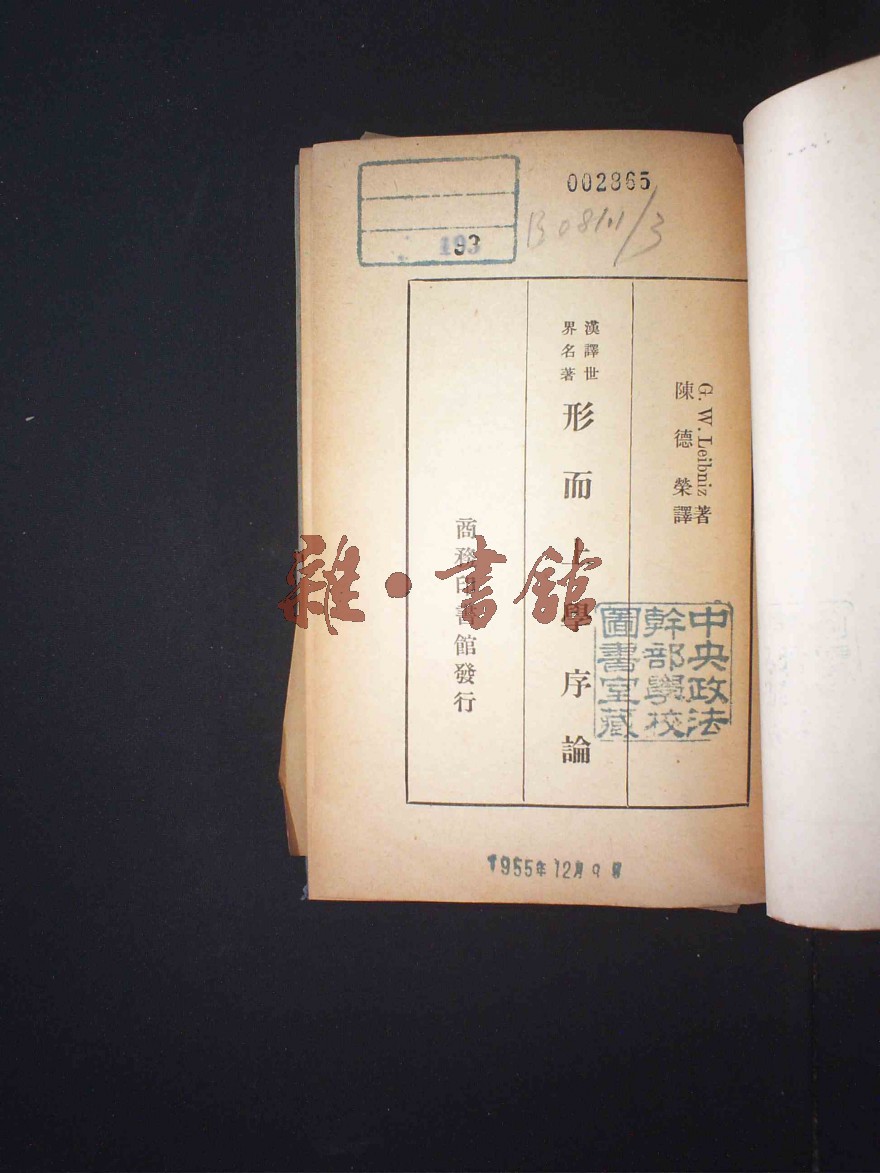 002865
193
G. W. Leibniz 著
陳德榮譯
漢譯世
界名著
形而上學序論
商務印書館發行
中央政法
幹部學校
圖書室藏
1955年12月9日
雜·書館